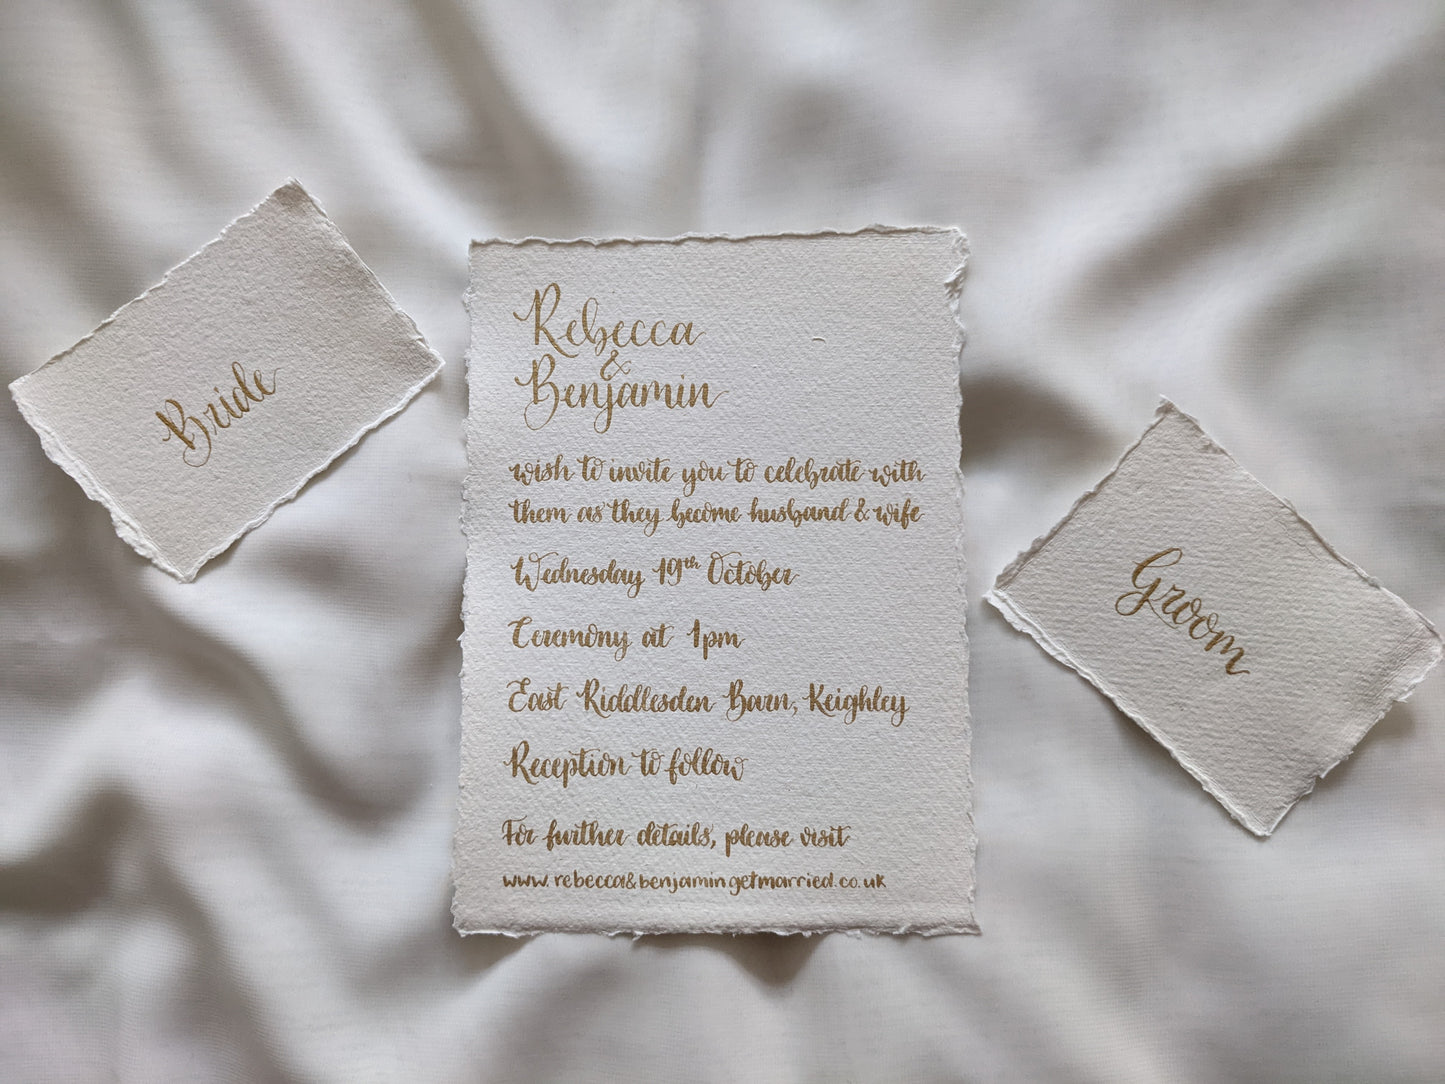 Bride
Rebecca
&
Benjamin
wish to invite you to celebrate with
them as they become husband & wife
Wednesday 19th October
Ceremony at 1pm
East Riddlesden Barn, Keighley
Reception to follow
For further details, please visit
www.rebecca&benjamingetmarried.co.uk
Groom